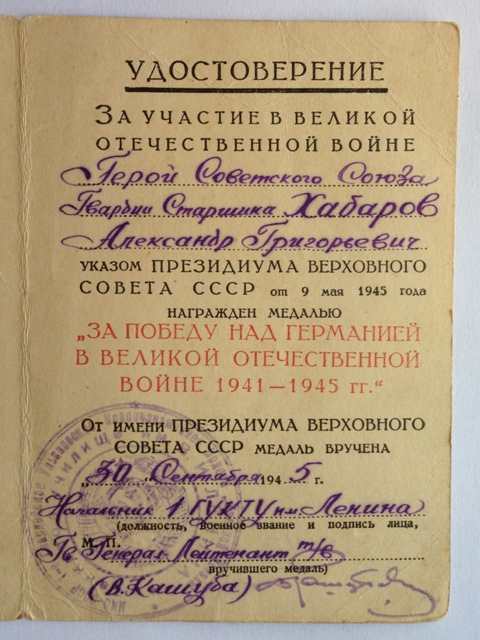 УДОСТОВЕРЕНИЕ
ЗА УЧАСТИЕ В ВЕЛИКОЙ
ОТЕЧЕСТВЕННОЙ ВОЙНЕ
Герой Советского Союза
Гвардии Старшина Хабаров
Александр Григорьевич
УКАЗОМ ПРЕЗИДИУМА ВЕРХОВНОГО
СОВЕТА СССР от 9 мая 1945 года
НАГРАЖДЕН МЕДАЛЬЮ
„ЗА ПОБЕДУ НАД ГЕРМАНИЕЙ
В ВЕЛИКОЙ ОТЕЧЕСТВЕННОЙ
ВОЙНЕ 1941—1945 гг.“
ОТ ИМЕНИ ПРЕЗИДИУМА ВЕРХОВНОГО
СОВЕТА СССР МЕДАЛЬ ВРУЧЕНА
„30“ Сентября 1945 г.
Начальник 1 ГУКТУ им Ленина
(должность, военное звание и подпись лица,
М. П.
Гв Генерал Лейтенант т/в
вручившего медаль)
(В. Кашуба)